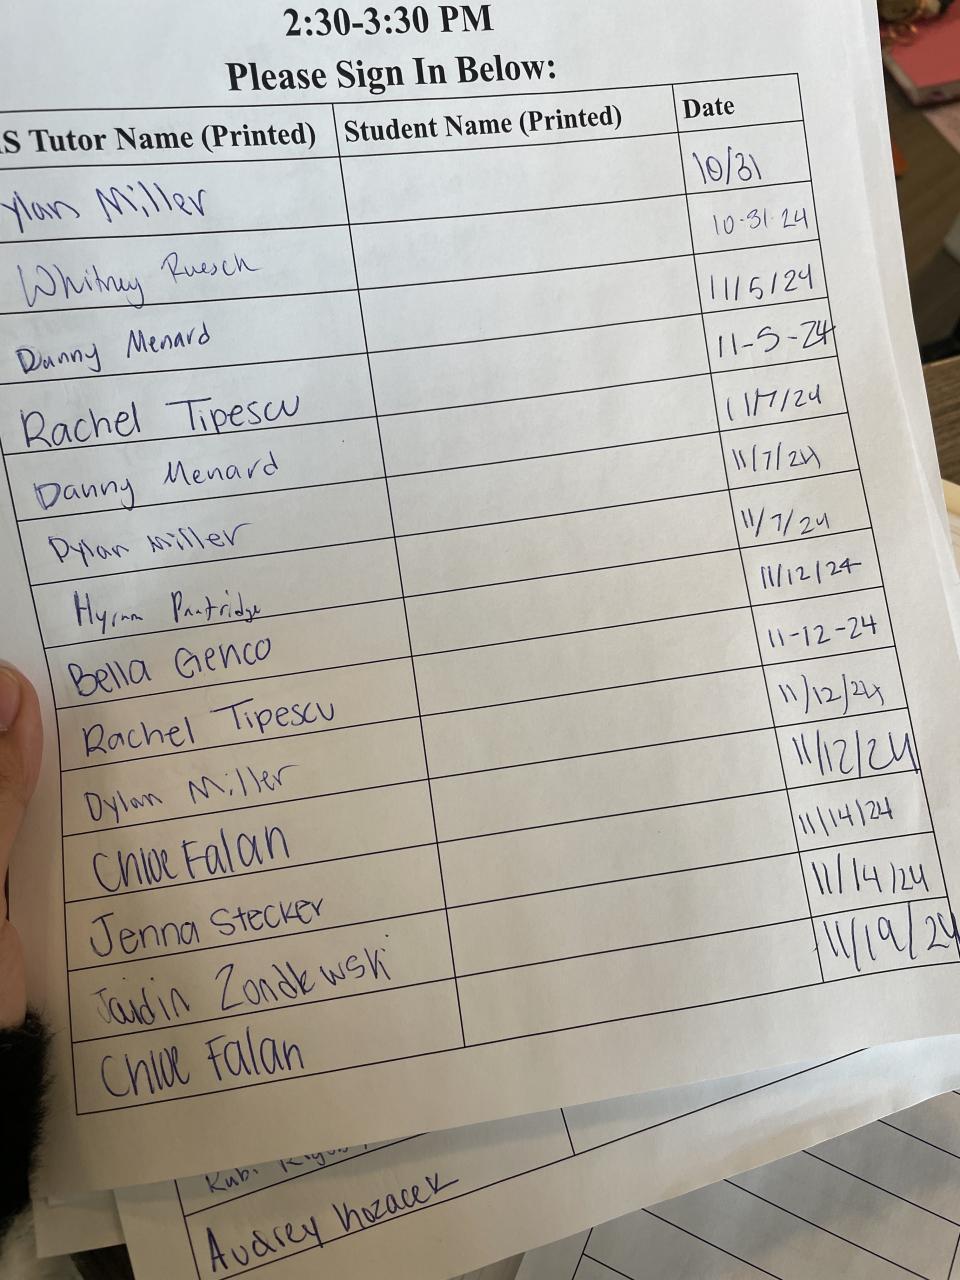 2:30-3:30 PM
Please Sign In Below:
S Tutor Name (Printed) Student Name (Printed) Date
ylan Miller 10/31
Whitney Ruesch 10-31-24
Danny Menard 11/5/24
Rachel Tipescu 11-5-24
Danny Menard 11/7/24
Dylan Miller 11/7/24
Hyrum Partridge 11/7/24
Bella Genco 11/12/24
Rachel Tipescu 11-12-24
Dylan Miller 11/12/24
Chloe Falan 11/12/24
Jenna Stecker 11/14/24
Jaidin Zondlewski 11/14/24
Chloe Falan 11/19/24
Audrey Kozacek